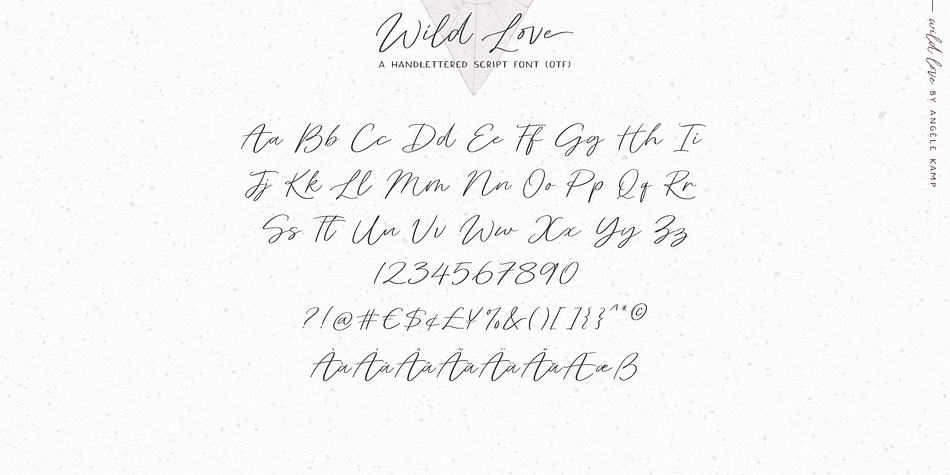 Wild Love
A HANDLETTERED SCRIPT FONT (OTF)
Aa Bb Cc Dd Ee Ff Gg Hh Ii
Jj Kk Ll Mm Nn Oo Pp Qq Rr
Ss Tt Uu Vv Ww Xx Yy Zz
1234567890
?!@#€$¢£¥%&()[]{}^*©
ÀàÁáÂâÃãÄäÅåÆæß
wild love BY ANGÈLE KAMP